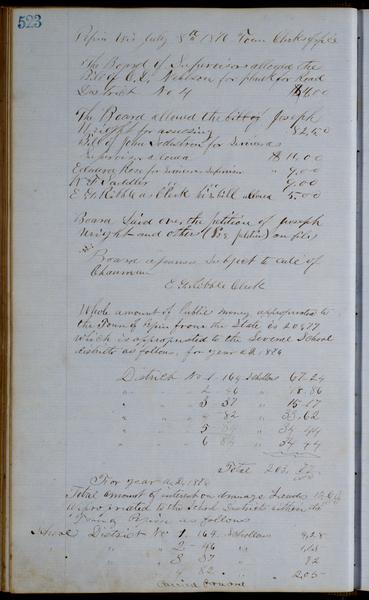 523
Pepin Wis July 8th 1876 Town Clerks office
The Board of Supervisors allowed the
Bill of C. L. Nelson for plank for Road
District No 4 $4.00
The Board allowed the bill of Joseph
Wright for assessing 82.50
Bill of John for Services
Supervisor allowed $11.00
Edward Rose for Services Supervisor " 9.00
W. F. Saddler " " 9.00
E. G. Ribble as Clerk his bill allowed 5.00
Board Laid over the petition of Joseph
Wright and others (See petition) on file
Board adjourned Subject to call of
Chairman
E G Ribble Clerk
Whole amount of Public money appropriated to
the Town of Pepin from the State is 204.77
which is appropriated to the Several School
districts as follows, for year AD. 1876
District No 1. 164 Scholars 67.24
" " 2 46 " 18.86
" " 3 37 " 15.17
" " 4 82 " 33.62
" " 5 84 " 34.44
" " 6 84 " 34.44
Total 203.77
For year A.D. 1876
Total amount of interest on drainage Funds
appropriated to the School Districts within the
Town of Pepin as follows
School District No 1. 164. Scholars
" " 2 46 "
" " 3 37 " 92
" " 4 82 " 2.05
Carried Forward